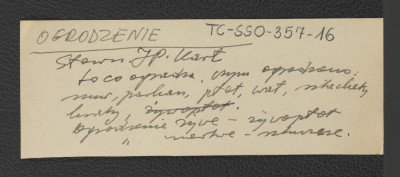 OGRODZENIE TC-SSO-357-16
Słown. JP. Karł
to co ogradza, czym ogrodzono:
mur, parkan, płot, wał, sztachety
kraty, żywopłot.
Ogrodzenie żywe - żywopłot
" martwe -